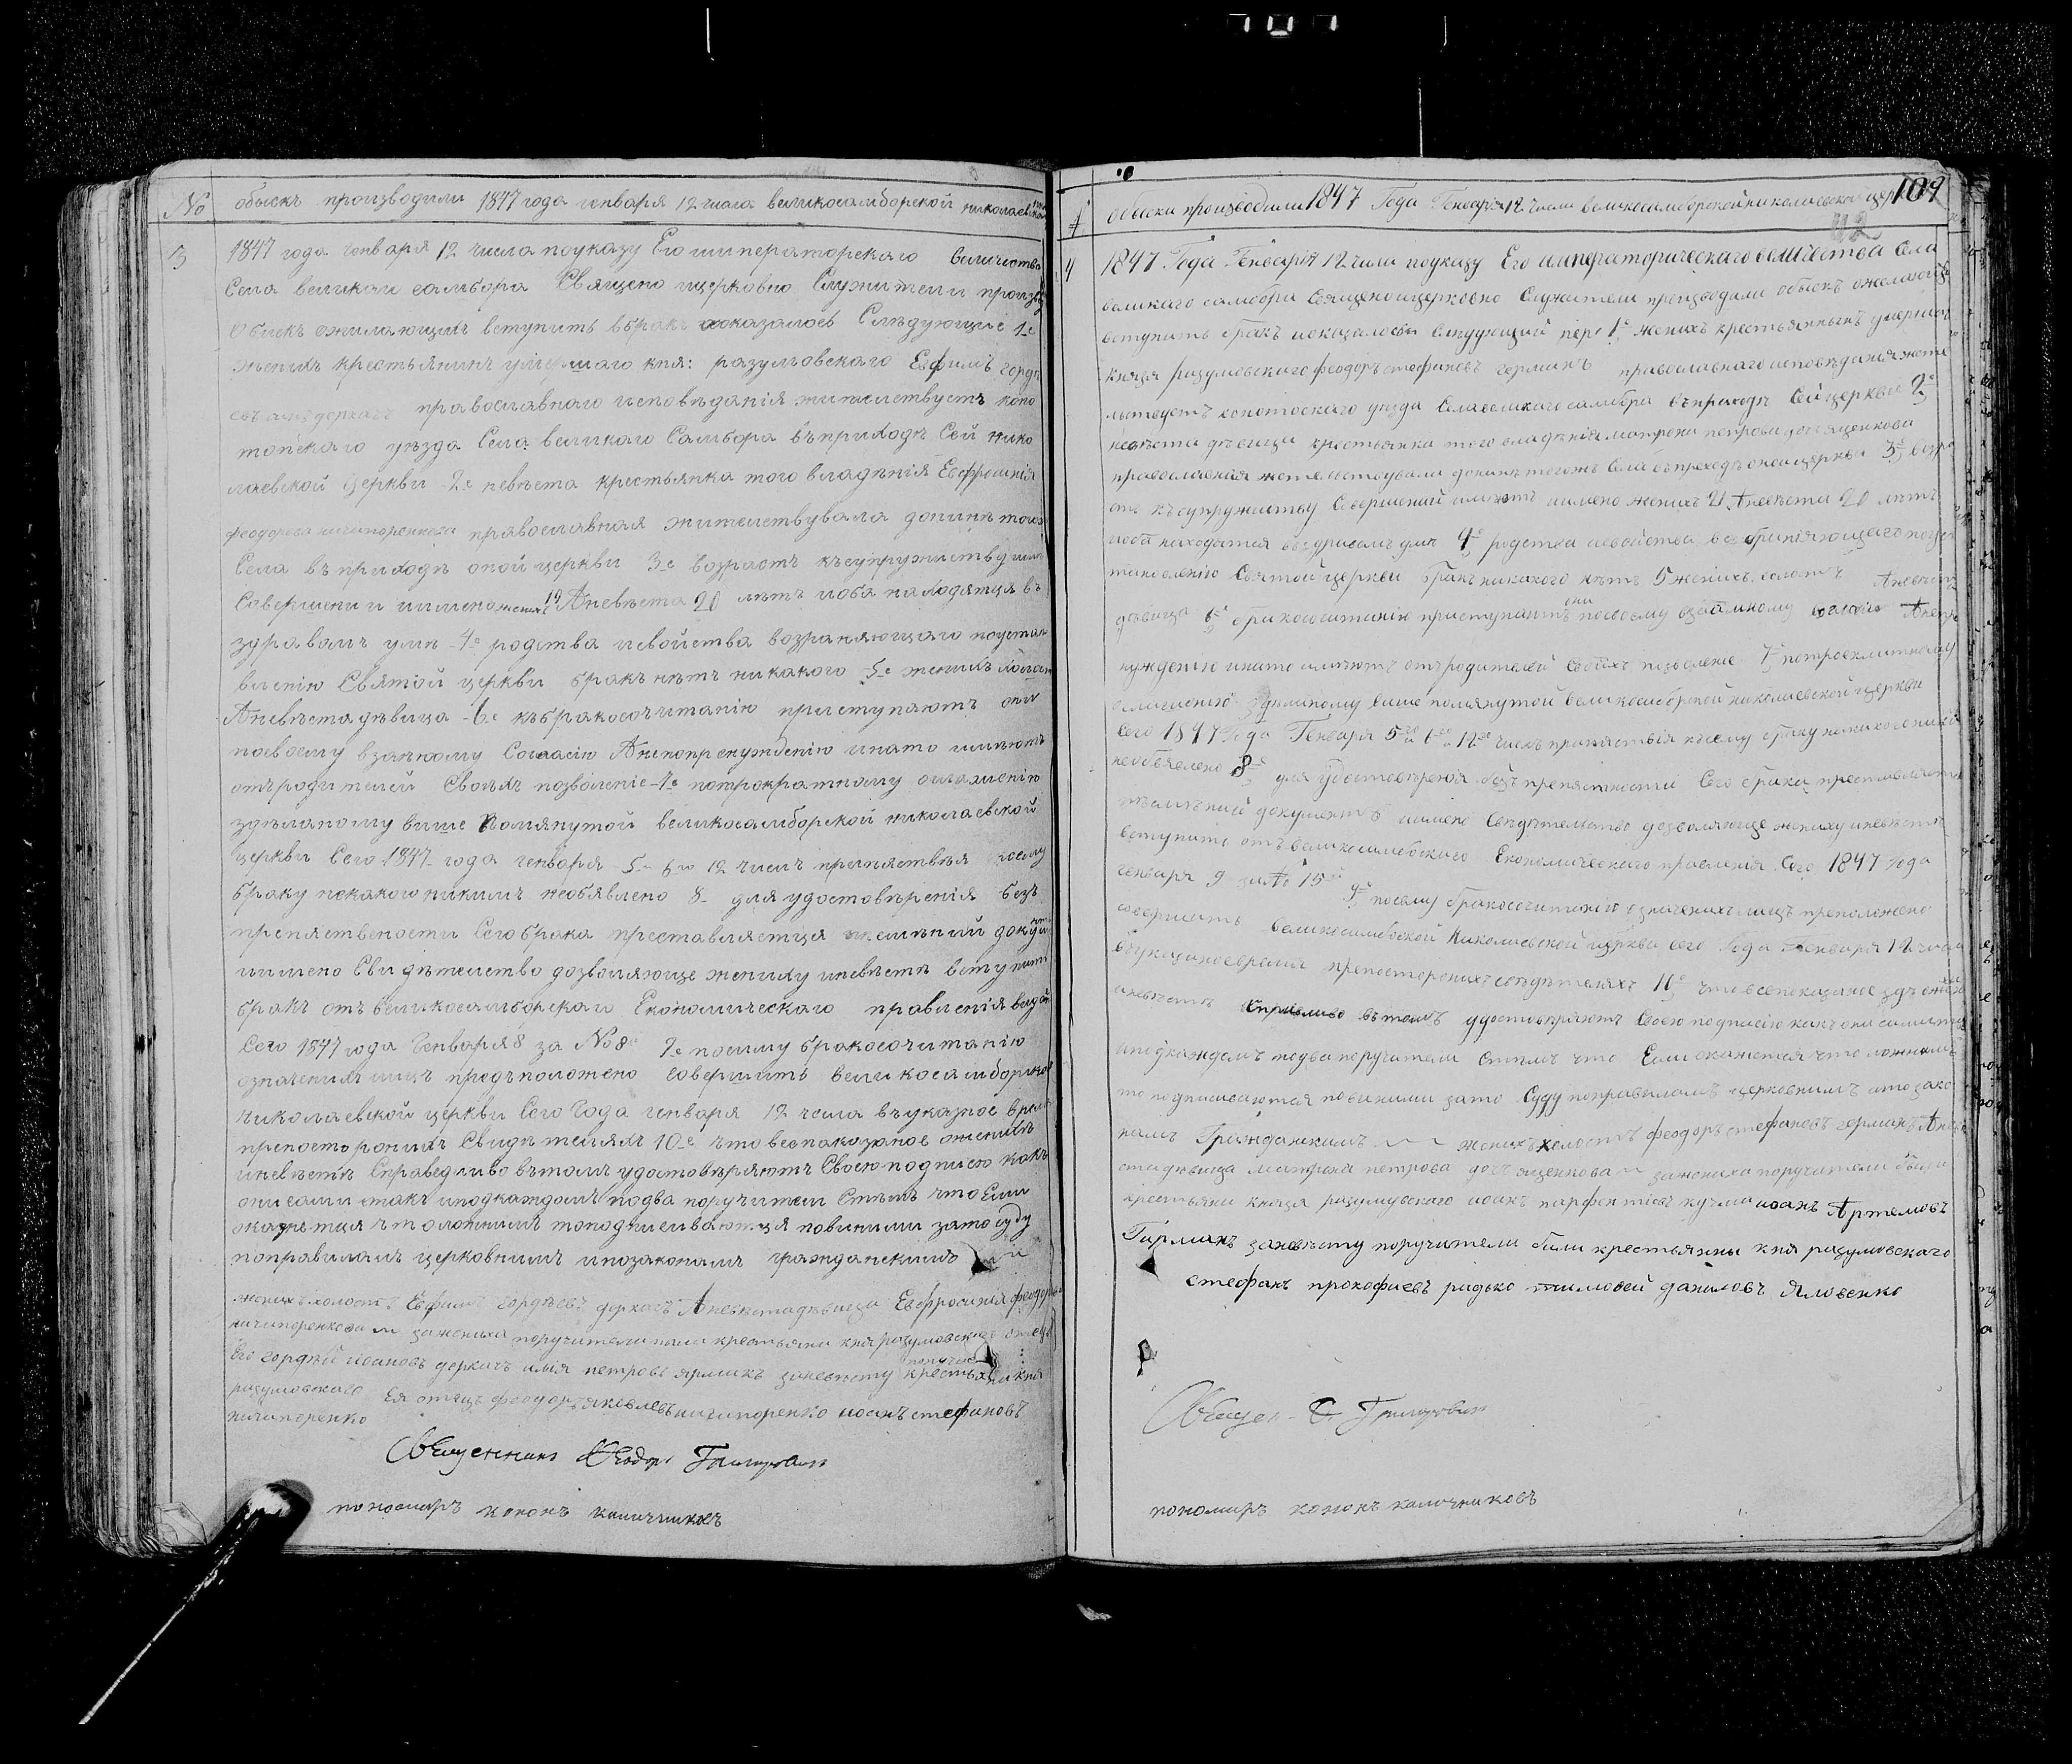 № обыскъ производили 1847 года генваря 12 числа великосамборской николаевской
3 1847 года генваря 12 числа поуказу Его императорскаго величества
Села великаго самбора Священо ицерковно Служители произв
обискъ ожилающихъ вступить вбракъ ноказалось Слѣдующие 1е
женихъ крестьянинъ умершаго кня: разумовскаго Ефимъ горд
евъ деркачъ православнаго исповѣданія жителствуетъ коно
топскаго уѣзда Села великаго Самбора въприходѣ Сей нико
лаевской Церкви 2е невѣста крестьянка того владѣнія Евфросинія
феодорова ничипоренкова православная жителствувала донинѣ тогож
Села въприходѣ оной церкви 3е возрастъ ксупружиству имѣ
Совершени и имено жених 19 Аневѣста 20 лѣтъ иоба находятця въ
здравомъ умѣ 4е родства исвойства возраняющаго поустан
вленію Святой церкви бракъ нѣтъ никакого 5е женихъ холост
Аневѣста дѣвица 6е къбракосочитанію приступаютъ они
посвоему взаемному Согласію Анепопренуждению инато имѣютъ
отъродителей Своихъ позволение 7е потрократному оглашенію
здѣланому више Помянутой великосамборской николаевской
церкви Сего 1847 года генваря 5 6 и 12 числъ препяствия ксему
браку некакого никимъ необявлено 8 для удостовѣренія безъ
препяствености Сего брака преставляетця писмѣний докум
имено Свидѣтелство дозволяюще жениху иневѣстѣ вступить
бракъ отъ великосамборскаго Економическаго правленія видан
Сего 1847 года Генваря 8 за №8 9е посиму бракосочитанію
означенихъ лицъ предположено Совершить великосамборской
Николаевской церкви Сего Года генваря 12 числа въуказное время
препосторонихъ Свидѣтеляхъ 10е что всепоказаное оженихѣ
иневѣстѣ Справедливо вътомъ удостовѣряютъ Своеюподписю какъ
они сами такъ иподкаждомъ подва поручители Стѣмъ что Если
окажетця что ложнимъ топодписиваютця повиними зато суду
поправиламъ церковнимъ ипозаконамъ гражданскимъ
женихъ холостъ Ефимъ гордѣевъ деркачъ Аневѣста дѣвица Евфросинія феодорова
ничипоренкова зажениха поручители били крестьяни кня разумовскаго отецъ
Его гордѣй иоановъ деркачъ илія петровъ ярмакъ заневѣсту поручие крестьяни кня
разумовскаго Ея отецъ феодоръ яковлевъ ничипоренко иоанъ стефановъ
ничипоренко
Священникъ Феодоръ Григорович
пономаръ кононъ калачниковъ
109
обыски производили 1847 Года Генваря 12 числа великосамборской николаевской цер
42
4 1847 Года Генваря 12 числа поуказу Его императорическаго величества Села
великаго самбора Священоицерковно Служители производили обыскъ ожелающ
вступить бракъ иоказалось Слѣдующий пер 1е женихъ крестьянинъ умершаго
князя разумовскаго феодоръ стефановъ германъ православнаго исповѣданія жите
льствуетъ конотоскаго уезда Села великаго самбора въприходѣ Сей церкви 2е
невѣста дѣвица крестьянка того владѣнія матрона петрова доч ященкова
православная жителствувала донинѣ тогожъ Села въприходѣ оной церкви 3е возра
отъ къ супружиству Совершений имѣютъ имено женихъ 21 Аневѣста 20 лѣтъ
иоба находятся вздравомъ умѣ 4е родства исвойства возбраняющаго поуст
тановлению Святой церкви бракъ никакого нѣтъ 5 женихъ холостъ Аневѣст
дѣвица 6е бракосочитанію приступаютъ они посвоему взаимному согласію Анепри
нуждению инато имѣютъ отъродителей своихъ позволение 7е потроекратному
оглашению здѣланому више помянутой великосамборской николаевской церкви
Сего 1847 года Генваря 5го 6го и 12го числъ препяствія ксему браку никакого никим
необявлено 8е для удостовѣренія безъпрепятности Сего брака преставляетс
писмѣний документъ имено Свидѣтельство дозволяюще жениху иневѣстѣ
вступить отъ великосамбоского Економического правленія Сего 1847 года
генваря 9 за № 15 9е посему бракосочитанію означенихъ лицъ преположено
совершить великосамбоской Николаевской церкви сего Года генваря 12 числа
вауказное время препосторонихъ свидѣтеляхъ 10е что всепоказаное здѣ ожених
иневѣстѣ Справиливо вътомъ удостовѣряютъ Своею подписію какъ они сами так
иподкаждомъ подва поручители Стѣмъ что Если окажется что ложнимъ
то подписиваются повиними зато Суду поправиламъ церковнимъ ипозако
намъ Гражданскимъ женихъ холостъ феодоръ стефановъ германъ Аневѣ
ста дѣвица матрона петрова доч ященкова зажениха поручители били
крестьяни князя разумувскаго иоанъ парфентиевъ кучма иоанъ Артемовъ
Гирманъ заневѣсту поручители били крестьяны кня разумовскаго
стефанъ прокофиевъ радько тимофей даниловъ Яловенко
Священ Ф Григорович
пономаръ кононъ калачниковъ